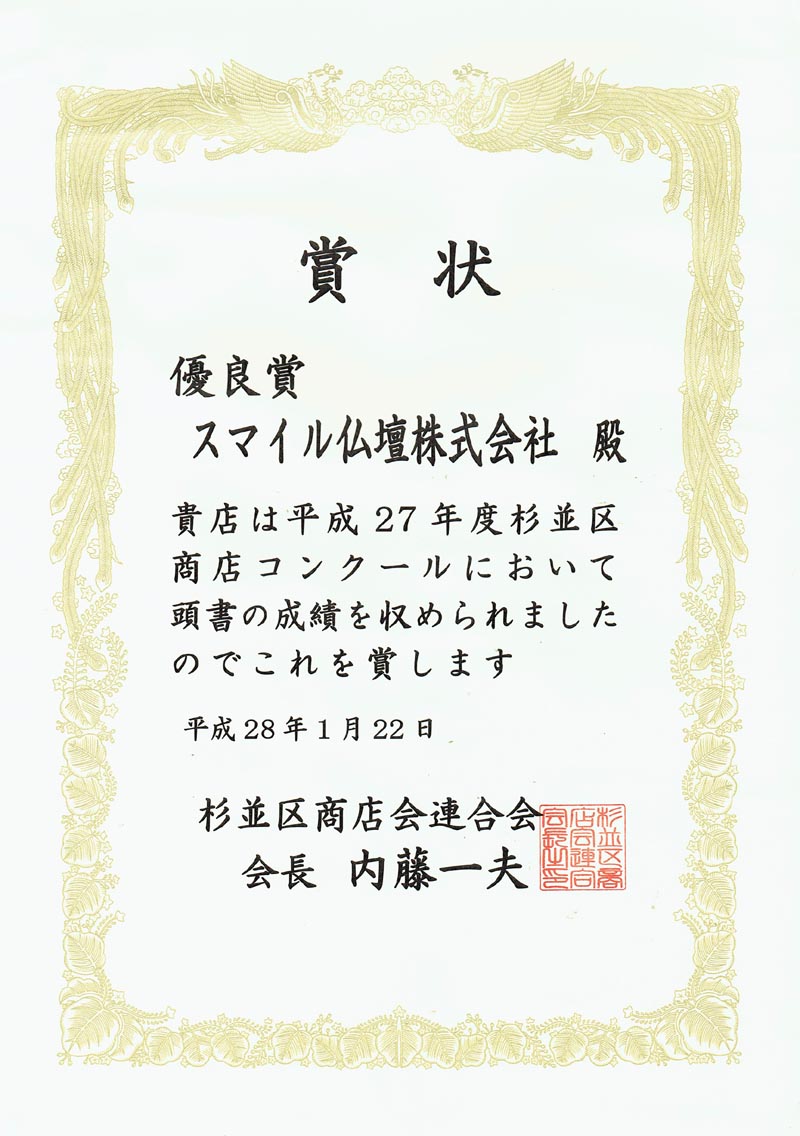 賞状
優良賞
スマイル仏壇株式会社 殿
貴店は平成27年度杉並区
商店コンクールにおいて
頭書の成績を収められました
のでこれを賞します
平成28年1月22日
杉並区商店会連合会
会長 内藤一夫
杉並区商
店会連合
会長之印